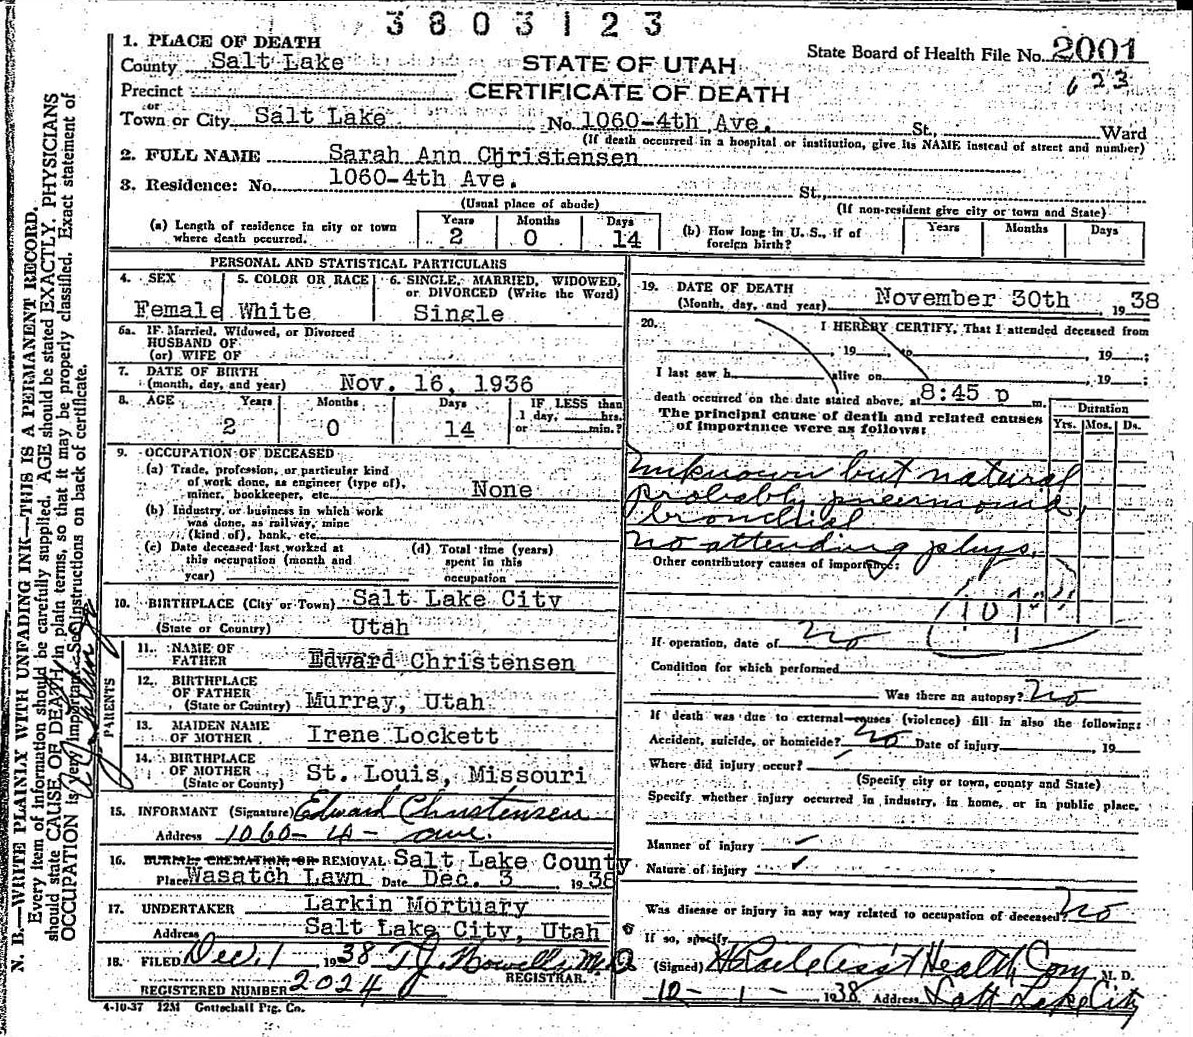 3803123
1. PLACE OF DEATH
State Board of Health File No. 2001
County Salt Lake
STATE OF UTAH
623
Precinct
CERTIFICATE OF DEATH
or
Town or City Salt Lake No. 1060-4th Ave. St., Ward
(If death occurred in a hospital or institution, give its NAME instead of street and number)
2. FULL NAME Sarah Ann Christensen
3. Residence: No. 1060-4th Ave. St.,
(Usual place of abode) (If non-resident give city or town and State)
(a) Length of residence in city or town where death occurred. Years 2 Months 0 Days 14
(b) How long in U. S., if of foreign birth? Years Months Days
PERSONAL AND STATISTICAL PARTICULARS
4. SEX Female
5. COLOR OR RACE White
6. SINGLE, MARRIED, WIDOWED, or DIVORCED (Write the Word) Single
6a. IF Married, Widowed, or Divorced
HUSBAND OF
(or) WIFE OF
7. DATE OF BIRTH
(month, day, and year) Nov. 16, 1936
8. AGE Years 2 Months 0 Days 14 IF LESS than 1 day, hrs. or min.?
9. OCCUPATION OF DECEASED
(a) Trade, profession, or particular kind
of work done, as engineer (type of),
miner, bookkeeper, etc. None
(b) Industry or business in which work
was done, as railway, mine
(kind of), bank, etc.
(c) Date deceased last worked at
this occupation (month and
year)
(d) Total time (years)
spent in this
occupation
10. BIRTHPLACE (City or Town) Salt Lake City
(State or Country) Utah
PARENTS
11. NAME OF
FATHER Edward Christensen
12. BIRTHPLACE
OF FATHER
(State or Country) Murray, Utah
13. MAIDEN NAME
OF MOTHER Irene Lockett
14. BIRTHPLACE
OF MOTHER
(State or County) St. Louis, Missouri
15. INFORMANT (Signature) Edward Christensen
Address 1060 - 4 - ave.
16. BURIAL, CREMATION, OR REMOVAL Salt Lake County
Place Wasatch Lawn Date Dec. 3 1938
17. UNDERTAKER Larkin Mortuary
Address Salt Lake City, Utah
18. FILED Dec. 1 1938 T.J. Howells M.D.
REGISTRAR.
REGISTERED NUMBER 2024
4-10-37 12M Gottschall Ptg. Co.
19. DATE OF DEATH
(Month, day, and year) November 30th 1938
20. I HEREBY CERTIFY, That I attended deceased from
, 19 , to , 19 ;
I last saw h alive on , 19 ;
death occurred on the date stated above, at 8:45 p m.
The principal cause of death and related causes
of importance were as follows:
Duration
Yrs. Mos. Ds.
Unknown but natural
probably pneumonia,
bronchial
No attending phys.
Other contributory causes of importance:
107
If operation, date of No
Condition for which performed
Was there an autopsy? No
If death was due to external causes (violence) fill in also the following:
Accident, suicide, or homicide? No Date of injury , 19
Where did injury occur?
(Specify city or town, county and State)
Specify whether injury occurred in industry, in home, or in public place.
Manner of injury
Nature of injury
Was disease or injury in any way related to occupation of deceased? No
If so, specify
(Signed) Ass't Health Com M. D.
12 - 1 - 1938 Address Salt Lake City
N. B.—WRITE PLAINLY WITH UNFADING INK—THIS IS A PERMANENT RECORD.
Every item of information should be carefully supplied. AGE should be stated EXACTLY. PHYSICIANS
should state CAUSE OF DEATH in plain terms, so that it may be properly classified. Exact statement of
OCCUPATION is very important. See instructions on back of certificate.